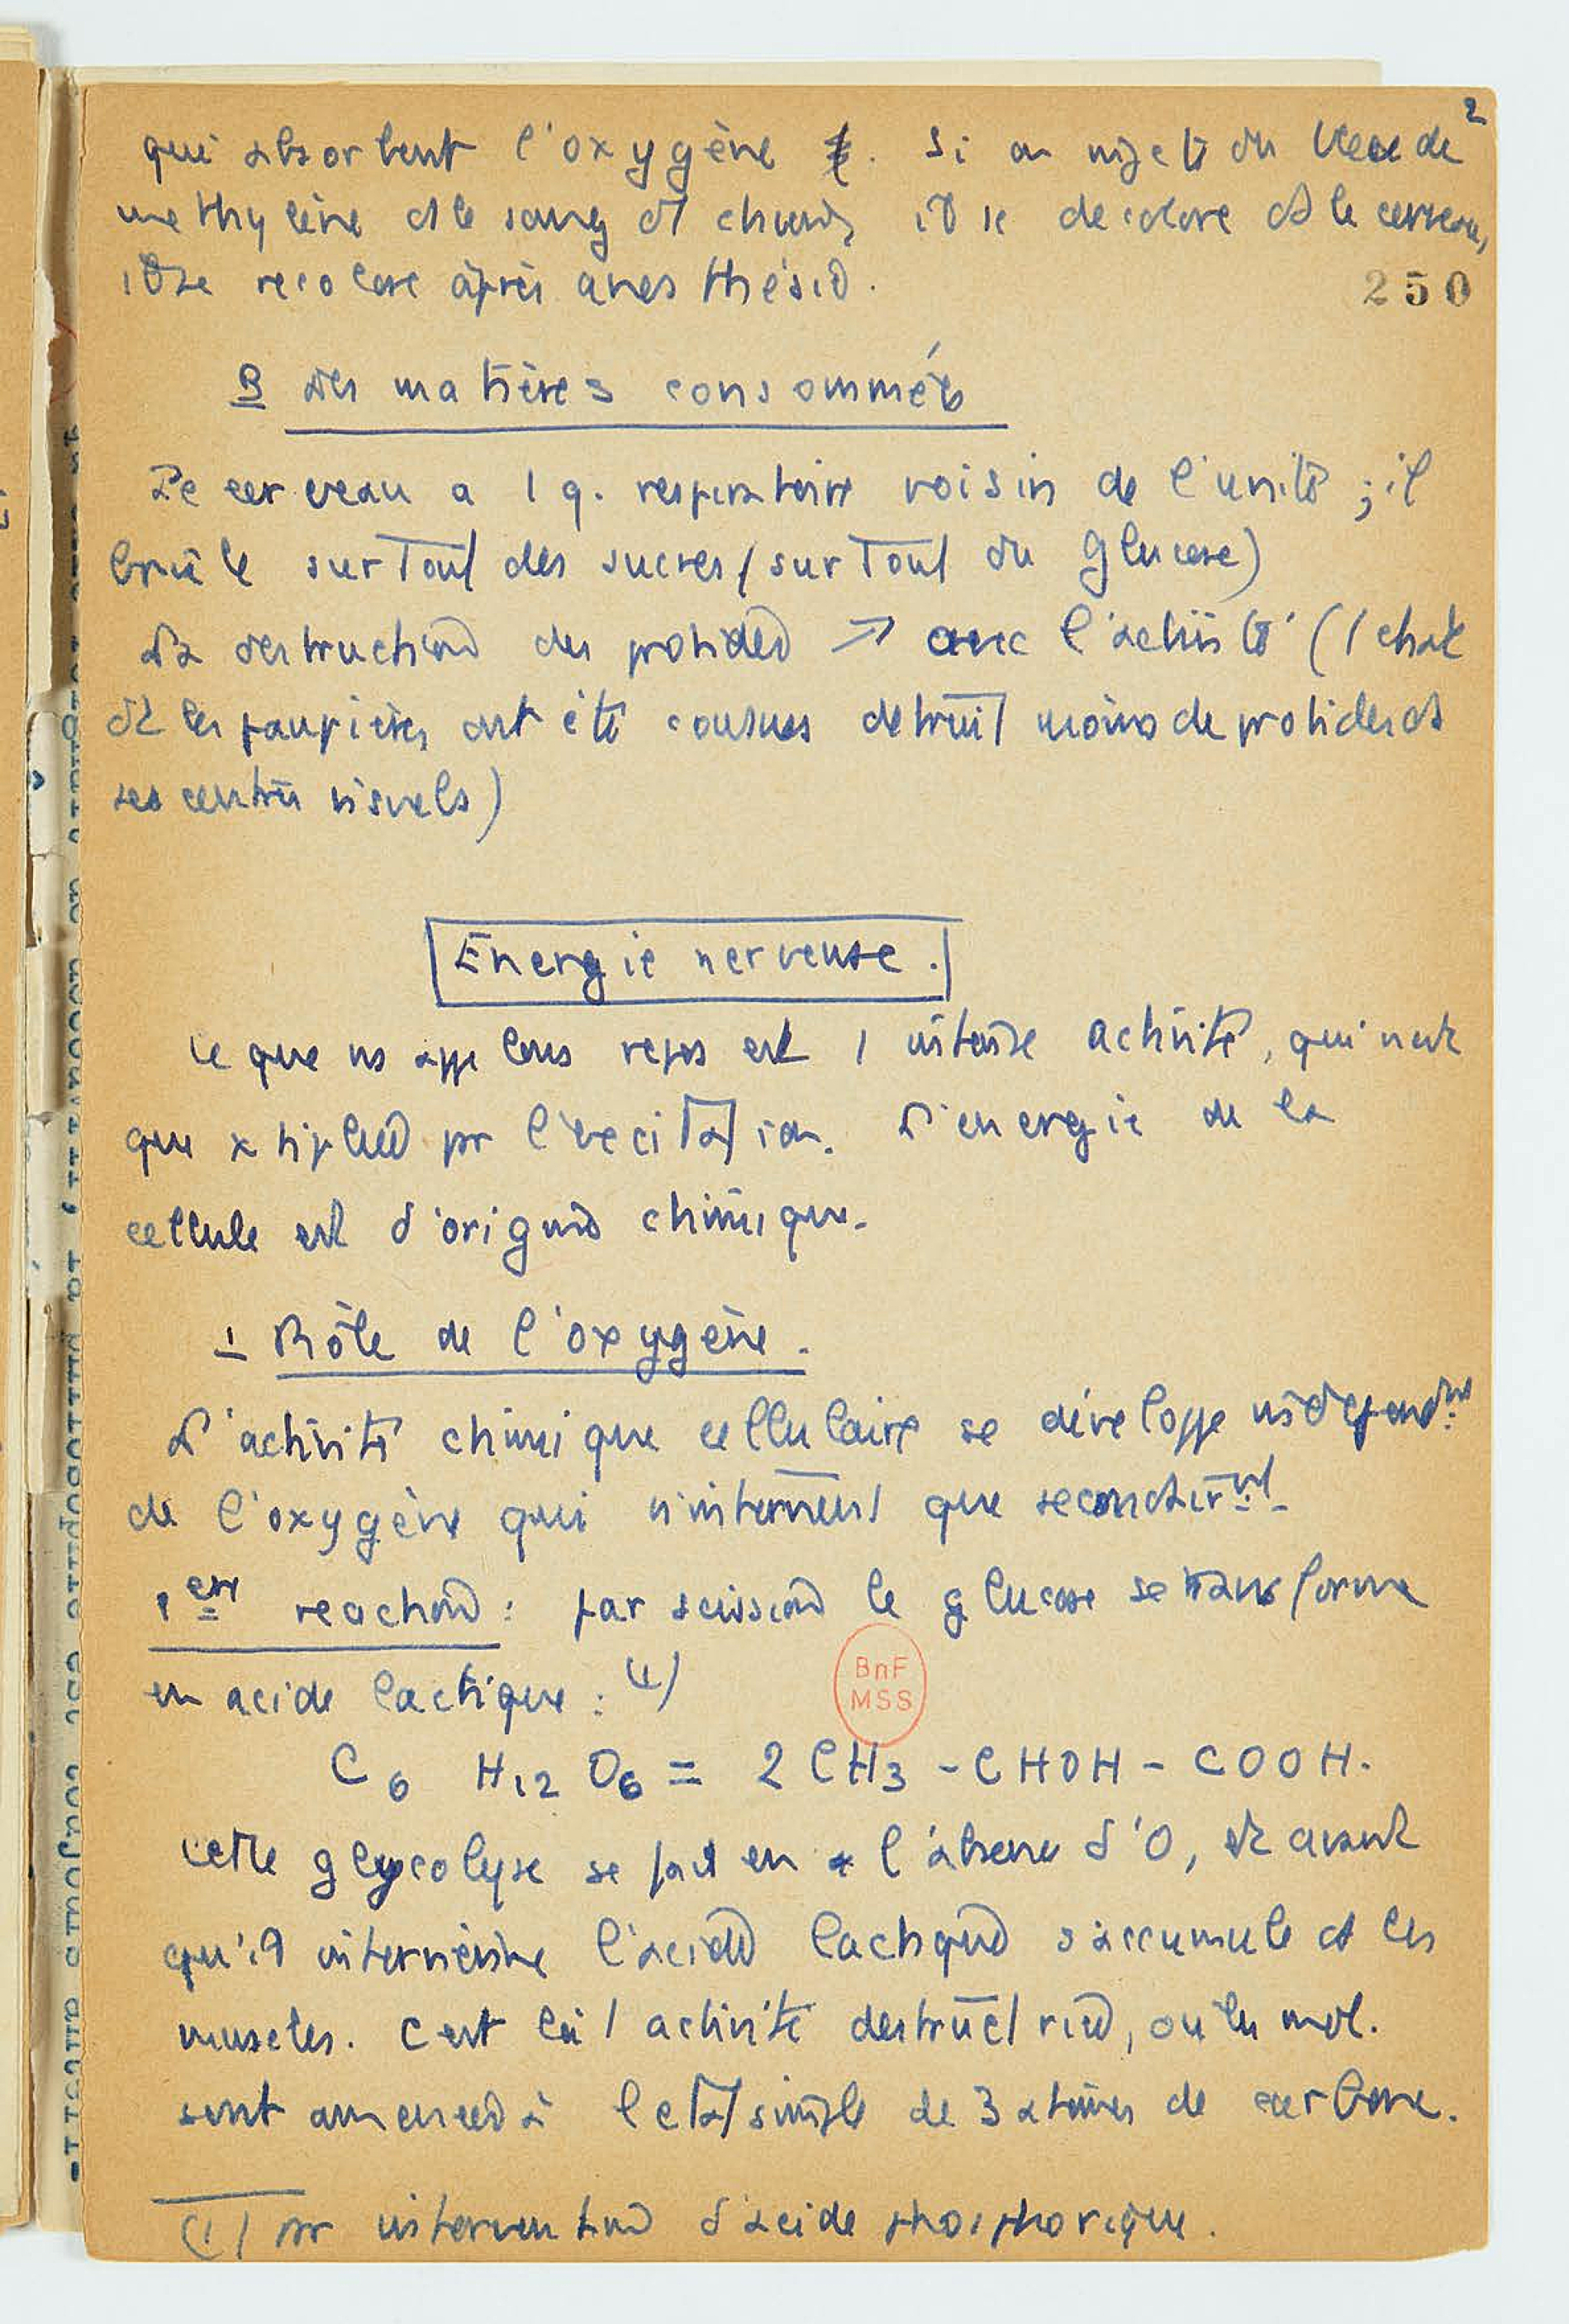 2
qui absorbent l'oxygène. Si on injecte du bleu de
methylène ds le sang d'1 chien, il se decolore ds le cerveau,
il se recolore après anesthésie.
250
B des matières consommées
Le cerveau a 1 q. respiratoire voisin de l'unité ; il
brûle surtout des sucres (surtout du glucose)
La destruction des protides ↗ avec l'activité (1 chat
dt les paupières ont été cousues detruit moins de protides ds
ses centres visuels)
Energie nerveuse.
Ce que ns appelons repos est 1 intense activité, qui n'est
que x tipliée pr l'excitation. L'energie de la
cellule est d'origine chimique.
1 Rôle de l'oxygène.
L'activité chimique cellulaire se développe independmt
de l'oxygène qui n'intervient que secondairmt
1ere reaction : par scission le glucose se transforme
en acide lactique : (1)
BnF
MSS
C6 H12 O6 = 2 CH3 - CHOH - COOH.
Cette glycolyse se fait en l'absence d'O, et avant
qu'il intervienne l'acide lactique s'accumule ds les
muscles. C'est là 1 activité destructrice, où les mol.
sont amenées à l'etat simple de 3 atomes de carbone.
(1) Par intervention d'acide phosphorique.